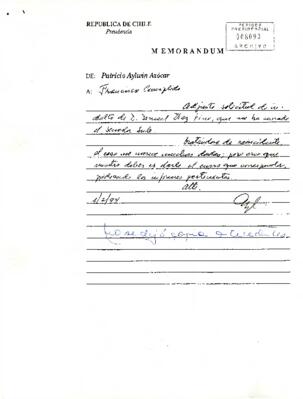 REPUBLICA DE CHILE
Presidencia
PERIODO
PRESIDENCIAL
008093
ARCHIVO
MEMORANDUM
DE: Patricio Aylwin Azócar
A: Francisco Cumplido
Adjunto solicitud de in-
dulto de D. Manuel Díaz, que me ha enviado
el senador
Tratándose de
el caso me merece muchas dudas, pero creo que
nuestro deber es darle el curso que corresponda,
pidiendo los informes pertinentes
Atte.
1/2/94
No se dejó copia